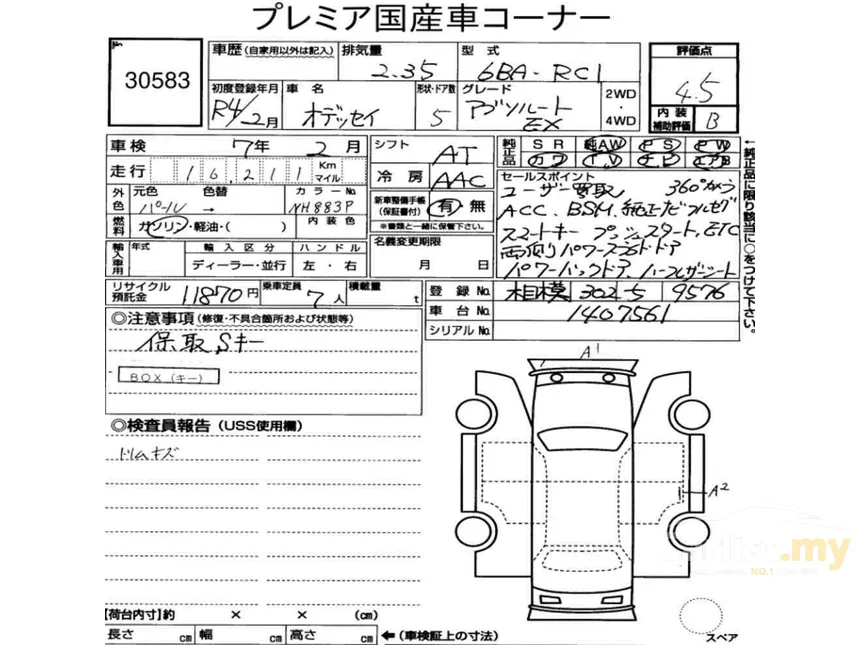 プレミア国産車コーナー
No.
30583
車歴 (自家用以外は記入) 排気量 型式
2.35 6BA-RC1
評価点
4.5
内装補助評価 B
初度登録年月 R4/2月
車名 オデッセイ
形状・ドア数 5
グレード アブソルート EX
2WD・4WD
車検 7年 2月
走行 16,211 Km マイル
シフト AT
冷房 AAC
純正品 SR 純AW PS PW
カワ TV ナビ エアB
外色 元色 色替 カラーNo.
パール → NH883P
燃料 ガソリン・軽油・( ) 内装色
新車整備手帳(保証書付) 有 無
※書類と一緒に保管下さい。
セールスポイント
ユーザー買取 360°カメラ
ACC、BSM、純正ナビフルセグ
スマートキー プッシュスタート、ETC
両側パワースライドドア
パワーバックドア、ハーフレザーシート
←純正品に限り該当に○をつけて下さい。
輸入車用 年式 輸入区分 ハンドル
ディーラー・並行 左・右
名義変更期限
月 日
リサイクル預託金 11870円 乗車定員 7人 積載量 t
登録No. 相模 302 5 9576
車台No. 1407561
シリアルNo.
◎注意事項 (修復・不具合箇所および状態等)
保取Sキー
BOX (キー)
◎検査員報告 (USS使用欄)
ドリムキズ
A1
A2
【荷台内寸】約 × × (cm)
長さ cm 幅 cm 高さ cm ←(車検証上の寸法)
スペア
.my
NO.1